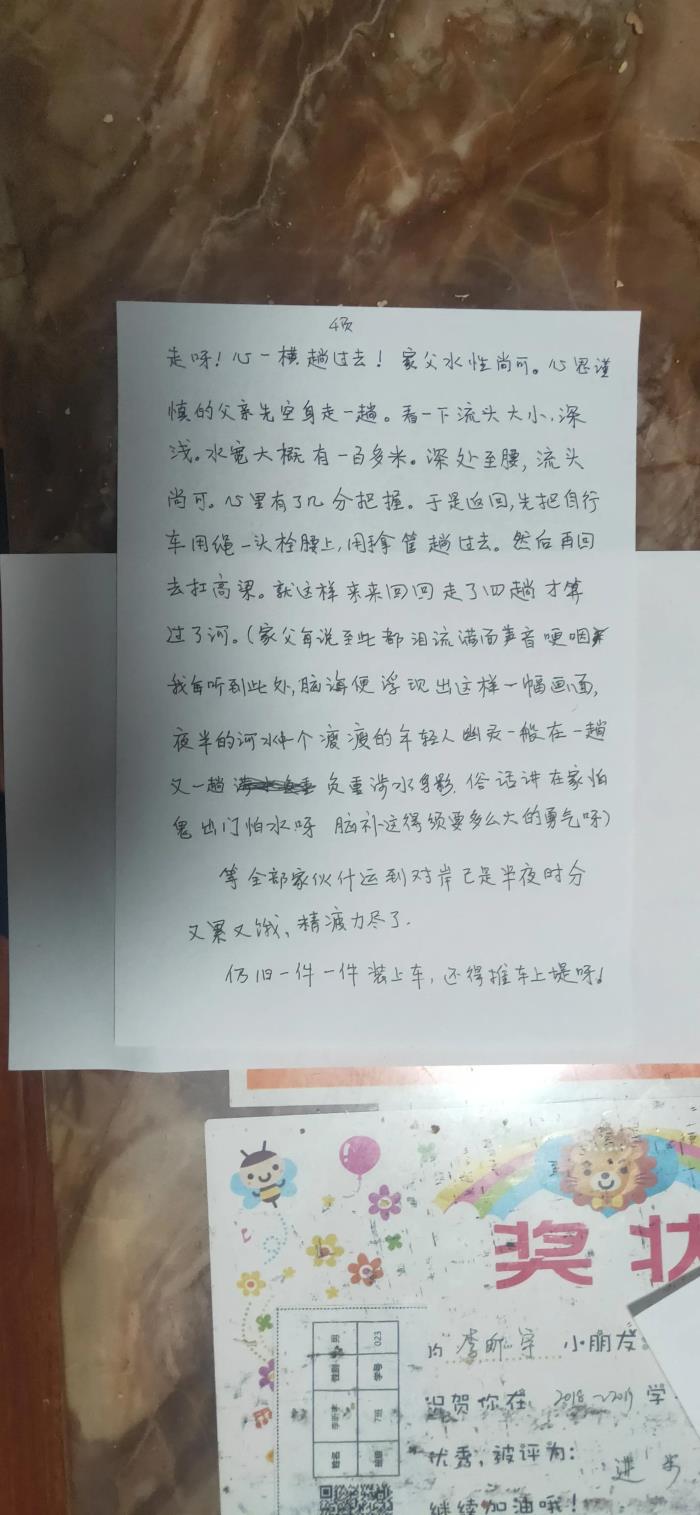 4页
走呀！心一横趟过去！家父水性尚可。心思谨
慎的父亲先空身走一趟。看一下流头大小、深
浅。水宽大概有一百多米。深处至腰，流头
尚可。心里有了几分把握。于是返回，先把自行
车用绳一头栓腰上，用手拿筐趟过去。然后再回
去扛高梁。就这样来来回回走了四趟才算
过了河。（家父每说至此都泪流满面声音哽咽
我每听到此处，脑海便浮现出这样一幅画面，
夜半的河水中个瘦瘦的年轻人幽灵一般在一趟
又一趟负重涉水身影。俗话讲在家怕
鬼出门怕水呀 脑补这得须要多么大的勇气呀）
等全部家伙什运到对岸已是半夜时分
又累又饿、精疲力尽了.
仍旧一件一件装上车，还得推车上堤呀！
奖状
李昕宇 小朋友:
祝贺你在 2018~2019 学
优秀，被评为:
进步
继续加油哦！
姓名
性别
班级
7班
学号
023